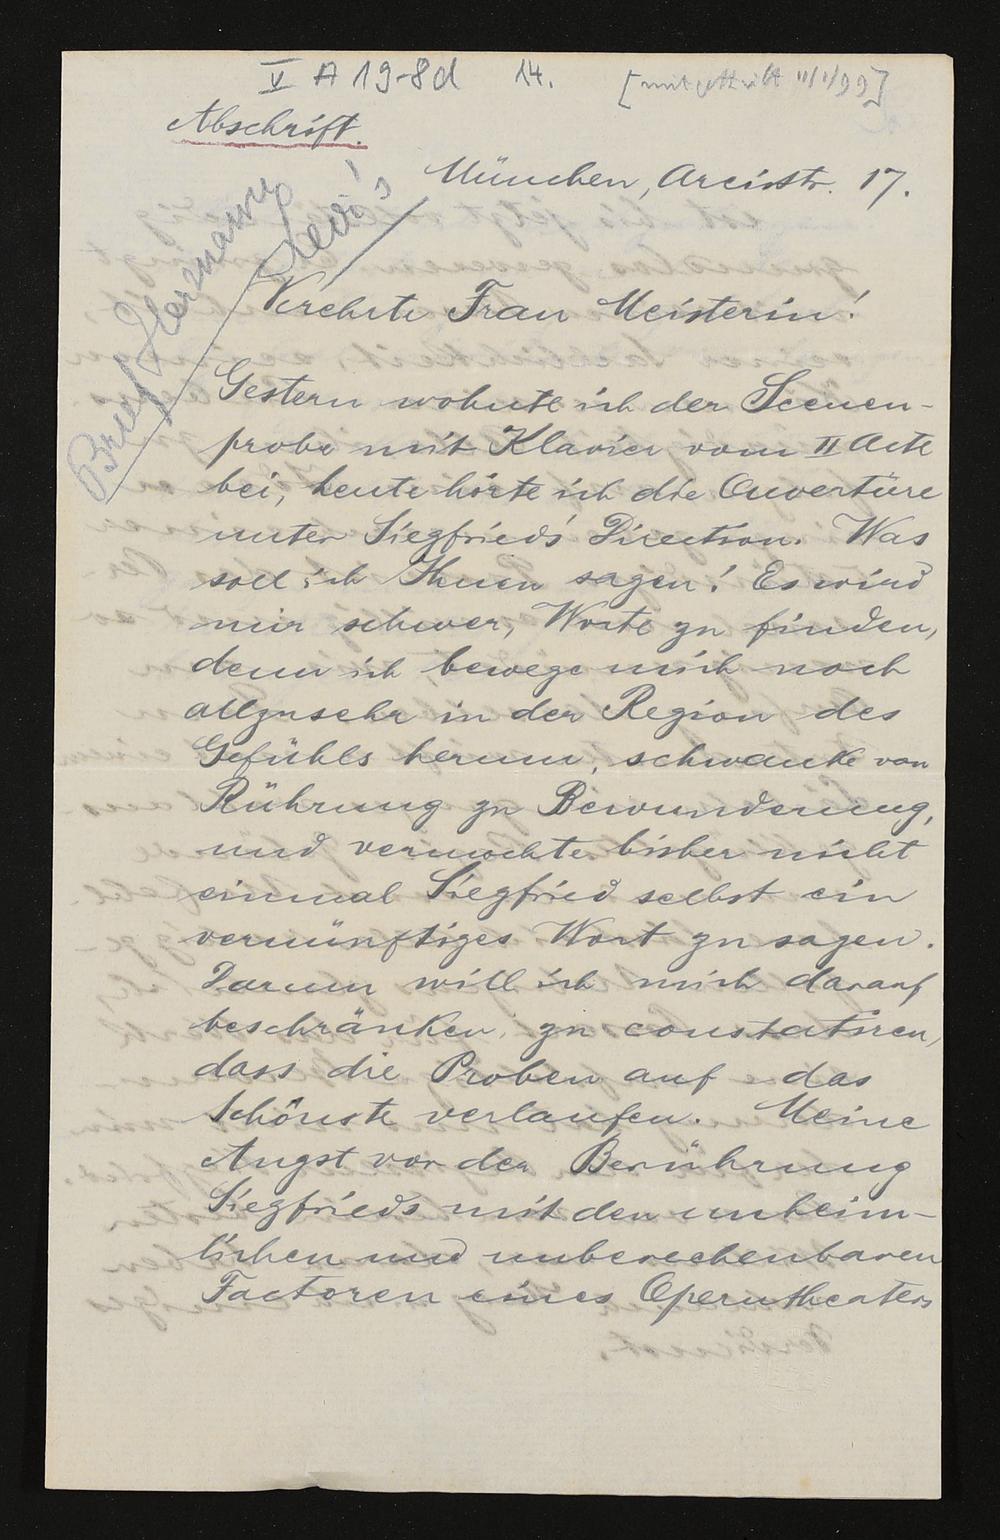 V A 19-8d 14. [mitgetheilt 11/1/99]
Abschrift.
Brief Hermann Levi's!
München, Arcisstr. 17.
Verehrte Frau Meisterin!
Gestern wohnte ich der Scenen-
probe mit Klavier vom II Acte
bei, heute hörte ich die Ouvertüre
unter Siegfried's Direction. Was
soll ich Ihnen sagen! Es wird
mir schwer, Worte zu finden,
denn ich bewege mich noch
allzusehr in der Region des
Gefühls herum, schwanke von
Rührung zu Bewunderung,
und vermochte bisher nicht
einmal Siegfried selbst ein
vernünftiges Wort zu sagen.
Darum will ich mich darauf
beschränken, zu constatiren,
dass die Proben auf das
Schönste verlaufen. Meine
Angst vor der Berührung
Siegfrieds mit den unheim-
lichen und unberechenbaren
Factoren eines Operntheaters